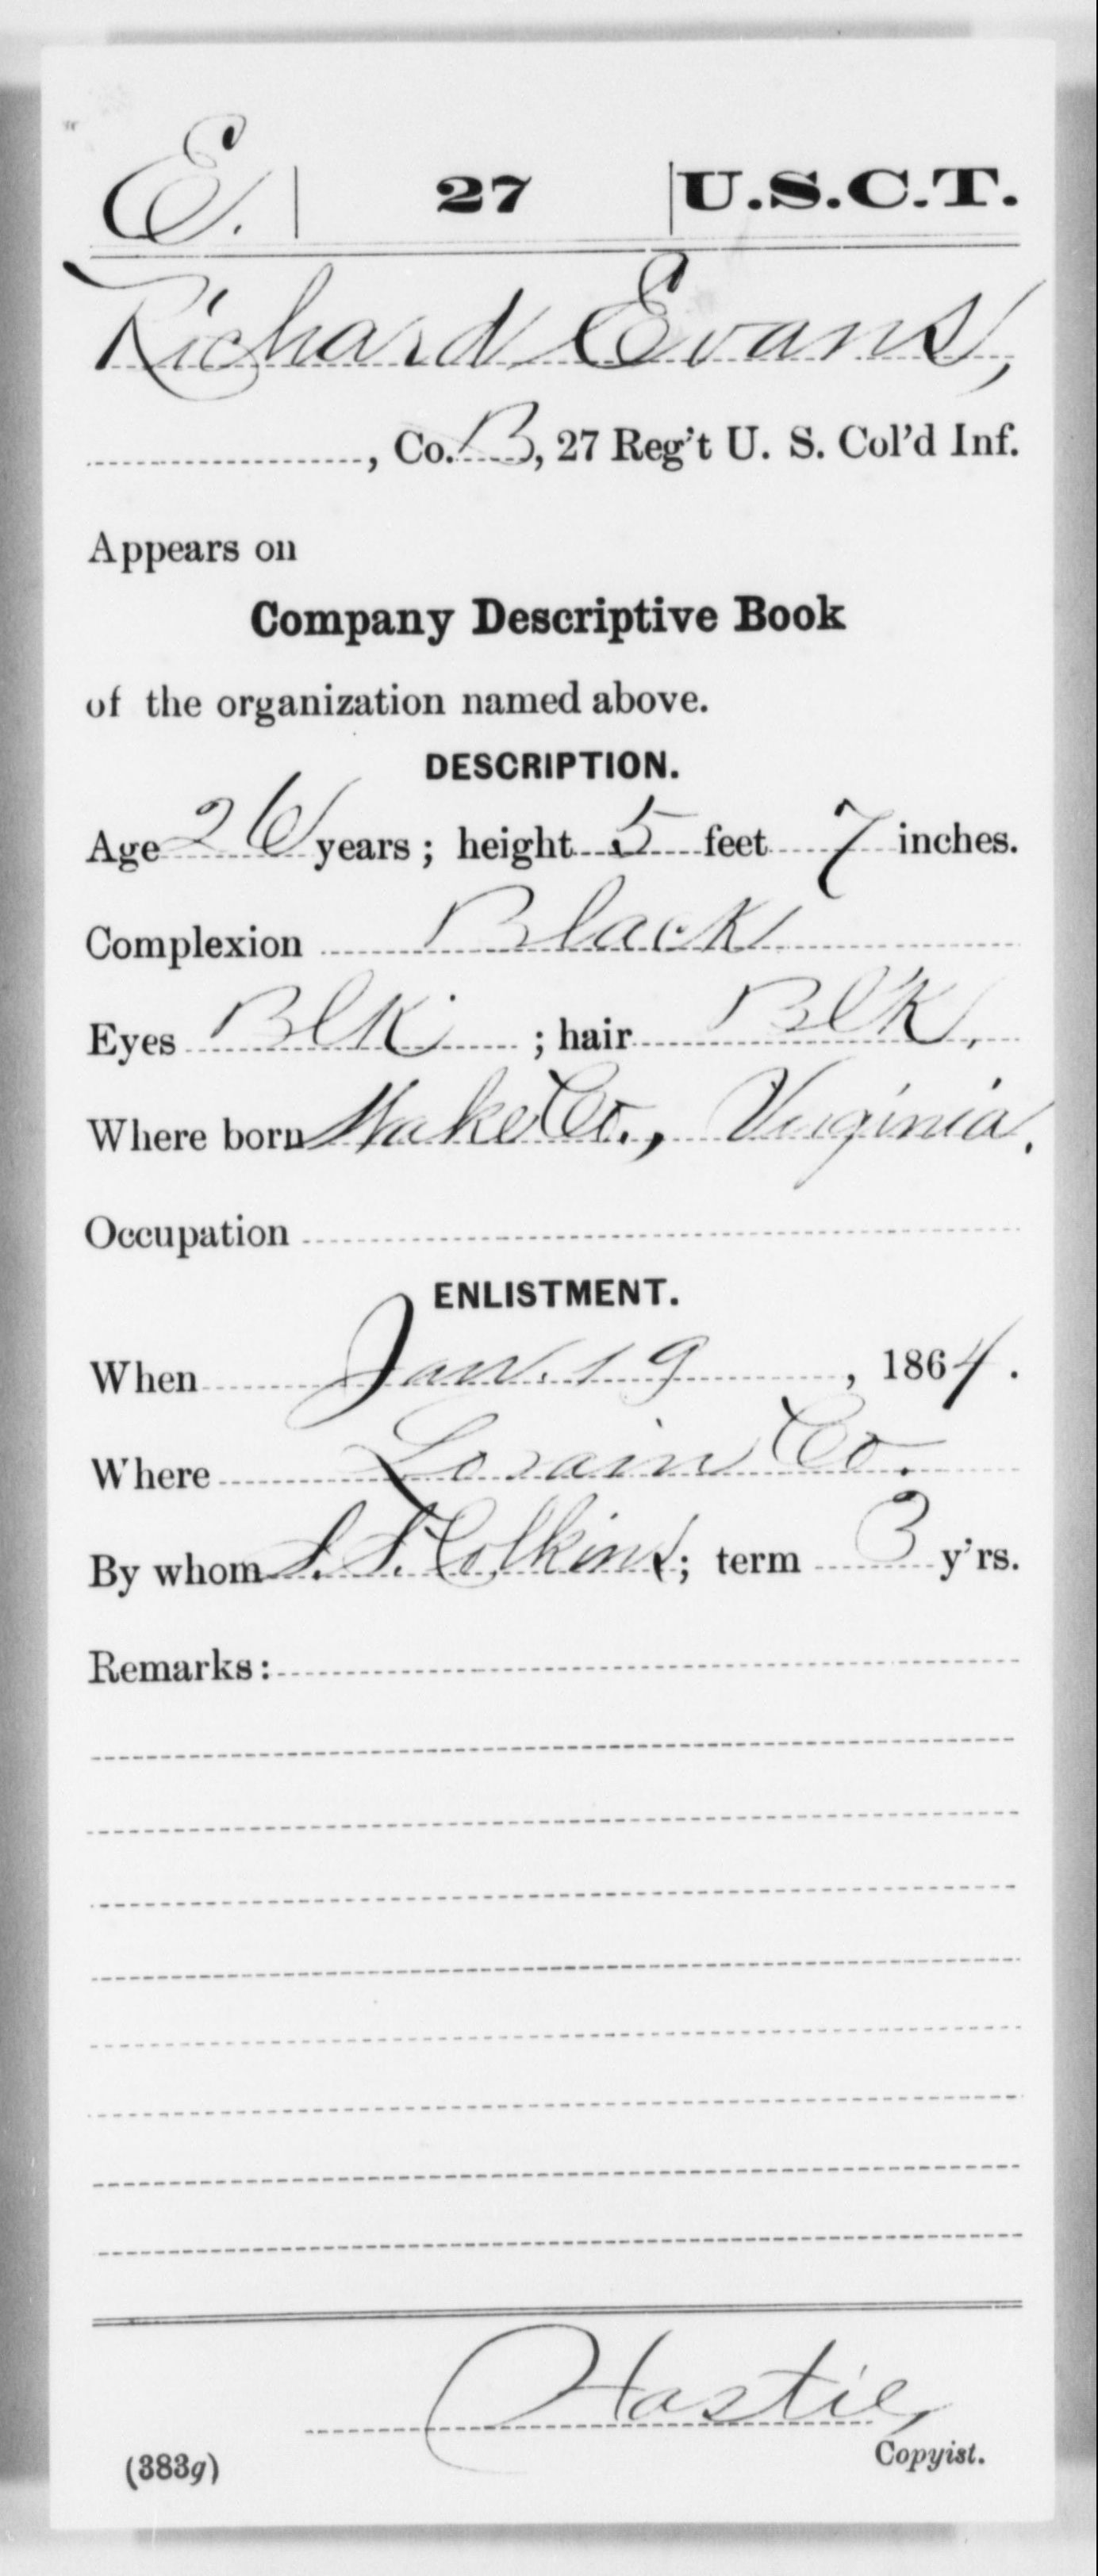 E. | 27 | U.S.C.T.
Richard Evans,
, Co. B, 27 Reg't U. S. Col'd Inf.
Appears on
Company Descriptive Book
of the organization named above.
DESCRIPTION.
Age 26 years; height 5 feet 7 inches.
Complexion Black
Eyes Blk ; hair Blk,
Where born Wake Co., Virginia.
Occupation
ENLISTMENT.
When Jan. 19, 1864.
Where Lorain Co.
By whom S. S. Colkins; term 3 y'rs.
Remarks:
Hastie,
Copyist.
(383g)